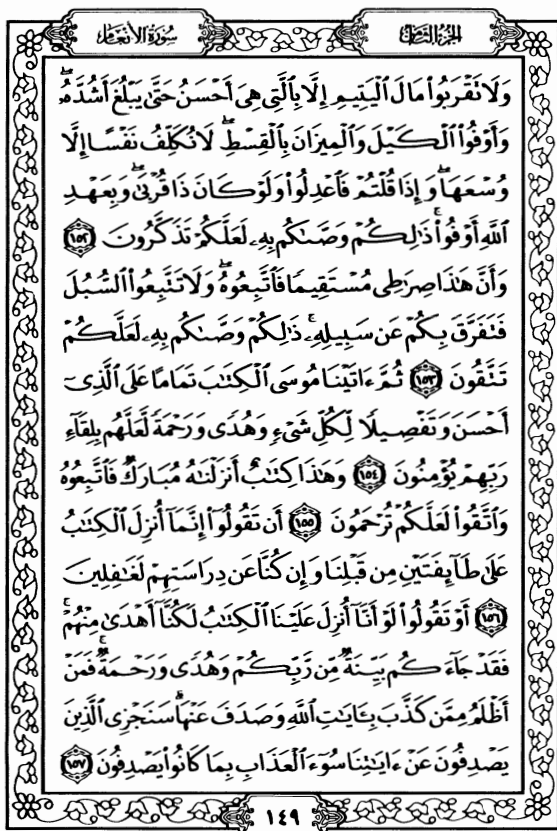 سورة الأنعام
الجزء الثامن
وَلَا تَقْرَبُوا۟ مَالَ ٱلْيَتِيمِ إِلَّا بِٱلَّتِى هِىَ أَحْسَنُ حَتَّىٰ يَبْلُغَ أَشُدَّهُۥ ۖ
وَأَوْفُوا۟ ٱلْكَيْلَ وَٱلْمِيزَانَ بِٱلْقِسْطِ ۖ لَا نُكَلِّفُ نَفْسًا إِلَّا
وُسْعَهَا ۖ وَإِذَا قُلْتُمْ فَٱعْدِلُوا۟ وَلَوْ كَانَ ذَا قُرْبَىٰ ۖ وَبِعَهْدِ
ٱللَّهِ أَوْفُوا۟ ۚ ذَٰلِكُمْ وَصَّىٰكُم بِهِۦ لَعَلَّكُمْ تَذَكَّرُونَ ١٥٢
وَأَنَّ هَٰذَا صِرَٰطِى مُسْتَقِيمًا فَٱتَّبِعُوهُ ۖ وَلَا تَتَّبِعُوا۟ ٱلسُّبُلَ
فَتَفَرَّقَ بِكُمْ عَن سَبِيلِهِۦ ۚ ذَٰلِكُمْ وَصَّىٰكُم بِهِۦ لَعَلَّكُمْ
تَتَّقُونَ ١٥٣ ثُمَّ ءَاتَيْنَا مُوسَى ٱلْكِتَٰبَ تَمَامًا عَلَى ٱلَّذِىٓ
أَحْسَنَ وَتَفْصِيلًا لِّكُلِّ شَىْءٍ وَهُدًى وَرَحْمَةً لَّعَلَّهُم بِلِقَآءِ
رَبِّهِمْ يُؤْمِنُونَ ١٥٤ وَهَٰذَا كِتَٰبٌ أَنزَلْنَٰهُ مُبَارَكٌ فَٱتَّبِعُوهُ
وَٱتَّقُوا۟ لَعَلَّكُمْ تُرْحَمُونَ ١٥٥ أَن تَقُولُوٓا۟ إِنَّمَآ أُنزِلَ ٱلْكِتَٰبُ
عَلَىٰ طَآئِفَتَيْنِ مِن قَبْلِنَا وَإِن كُنَّا عَن دِرَاسَتِهِمْ لَغَٰفِلِينَ
١٥٦ أَوْ تَقُولُوا۟ لَوْ أَنَّآ أُنزِلَ عَلَيْنَا ٱلْكِتَٰبُ لَكُنَّآ أَهْدَىٰ مِنْهُمْ ۚ
فَقَدْ جَآءَكُم بَيِّنَةٌ مِّن رَّبِّكُمْ وَهُدًى وَرَحْمَةٌ ۚ فَمَنْ
أَظْلَمُ مِمَّن كَذَّبَ بِـَٔايَٰتِ ٱللَّهِ وَصَدَفَ عَنْهَا ۗ سَنَجْزِى ٱلَّذِينَ
يَصْدِفُونَ عَنْ ءَايَٰتِنَا سُوٓءَ ٱلْعَذَابِ بِمَا كَانُوا۟ يَصْدِفُونَ ١٥٧
١٤٩